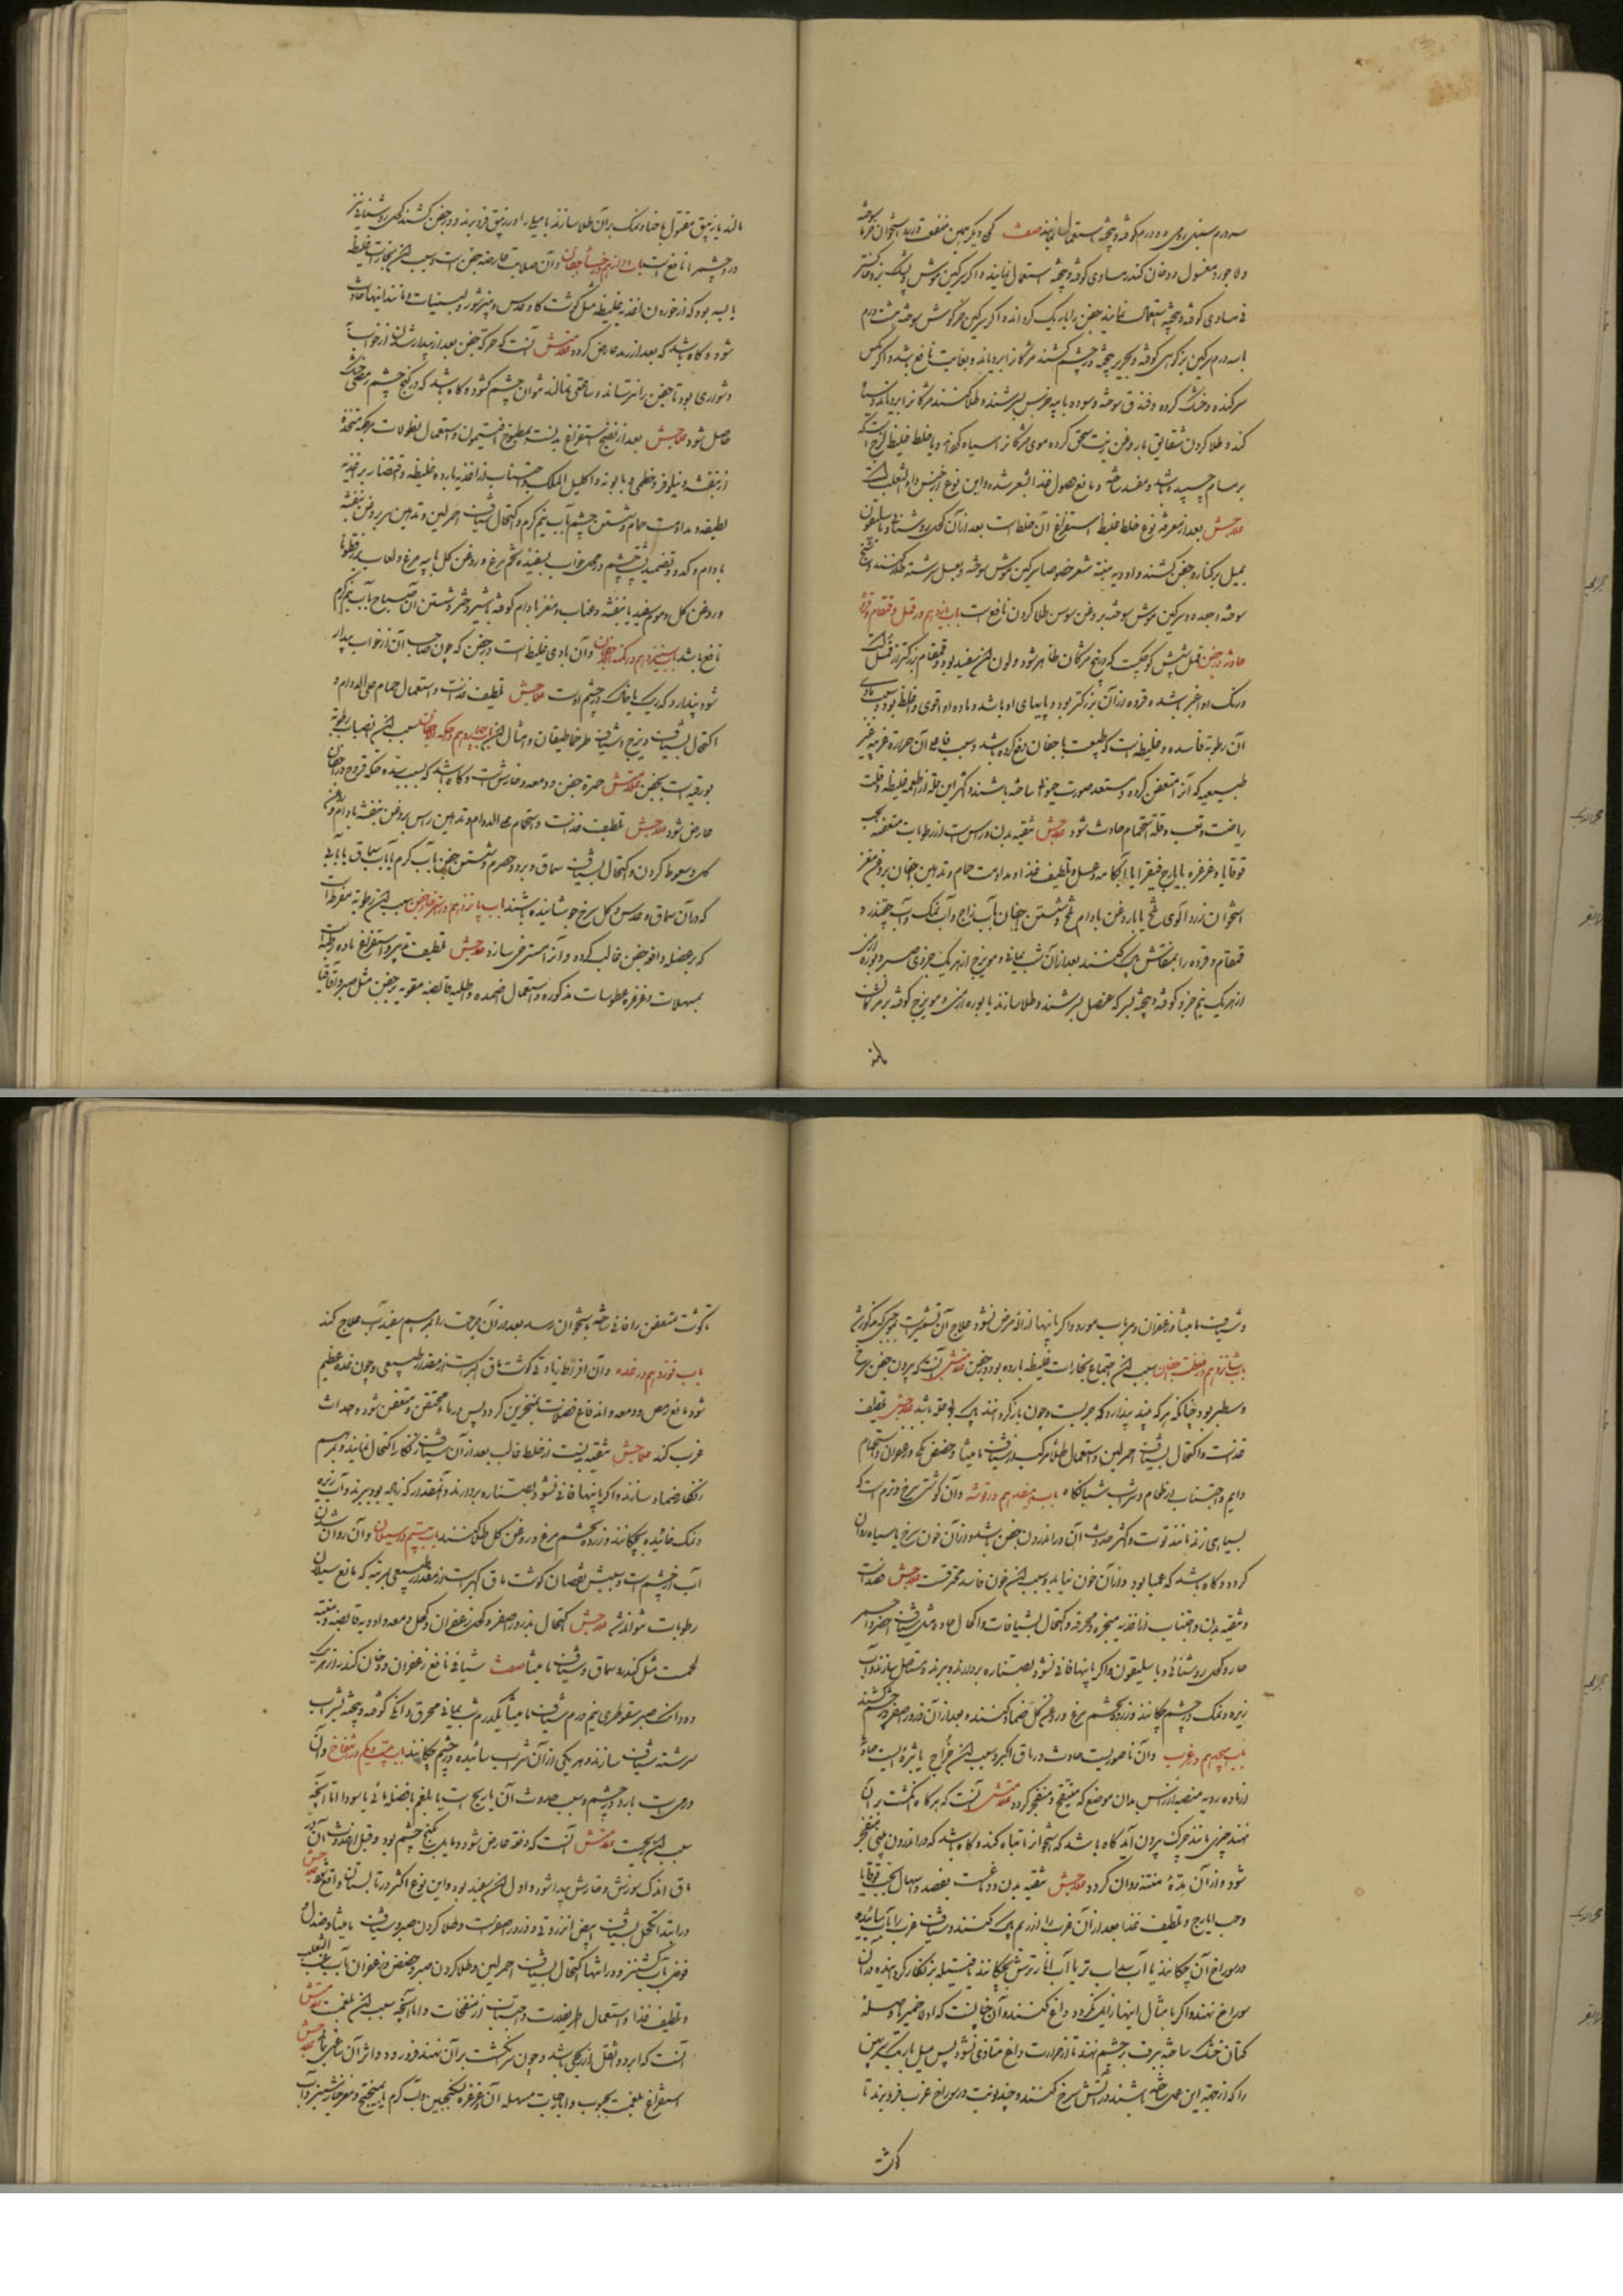 سه درم سنبل رومی دو درم کوفته و بیخته استعمال نمایند صفت کحل دیگر همین منفعت دارد استخوان خرما سوخته
ولاجورد مغسول و دخان کندر مساوی کوفته و بیخته استعمال نمایند و اگر سرکین موش
مساوی کوفته و بیخته استعمال نمایند جفن را باریک گرداند و اگر سرکین خرگوش سوخته هشت درم
با سه درم سرکین بز کوهی کوفته و بحریر بیخته در چشم کشند مژگانرا برویاند و بغایت نافع باشد و اگر مگس
سر کنده و خشک کرده و فندق سوخته و سوده با پیه خرس بسرشند و طلا کنند مژگانرا برویاند و سیاه
کند و طلا کردن شقایق با روغن زیت سحق کرده موی مژگانرا سیاه کند و یا خلط غلیظ لزج است که
بر مسام چسپیده باشد و مفسد ساخته و مانع حصول غذا بشعر شده و این نوع از جنس داء الثعلب است
علاجش بعد از معرفة نوع خلط غلیظ استفراغ آن خلط است بعد از آن کحل روشنائی و باسلیقون
بمیل بر کنار جفن کشند و ادویه منبته شعر خصوصا سرکین موش سوخته و بعسل سرشته طلا کنند و
سوخته و جعده و سرکین موش سوخته بروغن سوسن طلا کردن نافع است باب یازدهم در قمل و قمقام و قرده
حادثه در جفن قمل شپش کوچکست که در بیخ مژگان ظاهر شود و لون آن سفید بود و قمقام بزرکتر از قمل است
و رنگ او اغبر باشد و قرده از آن بزرکتر بود و پایهای او باشد و ماده او اقوی و اغلظ بود و سبب مادی
آن رطوبة فاسده و غلیظه است که طبیعت باجفان دفع کرده باشد و سبب فاعلی آن حرارة غریبه غیر
طبیعیه که آنرا متعفن کرده و مستعد صورت حیوة ساخته باشند و اکثر این علة از اطعمه غلیظه و قلت
ریاضت و تعب و قلة استحمام حادث شود علاجش تنقیه بدن و راس است از رطوبات متعفنه بحب
قوقایا و غرغره بایارج فیقرا یا با آبکامه و عسل و تلطیف غذا و مداومت حمام و تدهین اجفان بروغن مغز
استخوان زردآلوی تلخ یا با روغن بادام تلخ و شستن جفان بآب زاج و آب نمک و آب چقندر و
قمقام و قرده را بمنقاش پاک کنند بعد از آن شب یمانی و مویزج از هر یک جزوی صبر و بوره ارمنی
از هر یک نیم جزو کوفته و بیخته بسرکه عنصل بسرشند و طلا سازند یا بوره ارمنی و مویزج کوفته بر مژگان
مالند
مالند یا زیبق مقتول با حنا و نمک بر آن طلا سازند یا میل را در زیبق فرو برند و در جفن کشند کحل روشنائی نیز
در چشم را نافع است باب دوازدهم در جساء اجفان و آن صلابت عارضه جفن است و سبب آن بخارات غلیظه
یابسه بود که از خوردن اغذیه غلیظه مثل گوشت گاو و عدس و پنیر شور و لبنیات و مانند اینها حادث
شود و گاه باشد که بعد از رمد عارض گردد علامتش آنست که حرکة جفن بعد از بیدار شدن از خواب
دشوار بود تا جفن را نتر نسازند و ساعتی نمالند نتوان چشم گشود و گاه باشد که در کنج چشم رمصی خشک
حاصل شود علاجش بعد از نضج استفراغ بدنست بمطبوخ افتیمون و استعمال نطولات مرطبه متخذه
از بنفشه و نیلوفر و خطمی و بابونه و اکلیل الملک و اجتناب از اغذیه بارده غلیظه و اقتصار بر اغذیه
لطیفه و مداومت حمام و شستن چشم بآب نیم گرم و اکتحال شیاف احمر لین و تدهین سر بروغن بنفشه
بادام و کدو و تضمید پشت چشم در محل خواب بسفیده تخم مرغ و روغن گل با پیه مرغ و لعاب بزرقطونا
و روغن گل و موم سفید یا بنفشه و عناب و مغز بادام کوفته بشیر دختر و شستن آن صباح بآب نیم گرم
نافع باشد باب سیزدهم در کمنه اجفان و آن بادی غلیظ است در جفن که چون صاحب آن از خواب بیدار
شود پندارد که ریک یا خاک در چشم اوست علاجش تلطیف غذاست و استعمال حمام علی الدوام و
اکتحال بشیاف دیزج و شیاف طرخماطیقان و امثال آن باب چهاردهم در حکه اجفان سبب آن انصباب رطوبة
بورقیه است بجفن علامتش حمرة جفن و دمعه و خارش است و گاه باشد که بسبب شدة حکه قروح در اجفان
عارض شود علاجش تلطیف غذاست و استحمام علی الدوام و تدهین راس بروغن بنفشه بادام و روغن
گل و سعوط کردن و اکتحال بشیاف سماق و برود حصرم و شستن جفن بآب گرم یا بآب سماق یا بآبی
که در آن سماق و عدس و گل سرخ جوشانیده باشند باب پانزدهم در استرخاء جفن سبب آن رطوبة مفرطه است
که بر عضله رافع جفن غالب گردد و آنرا مسترخی سازد علاجش تلطیف تدبیر و استفراغ ماده رطبه است
بمسهلات و غرغره و عطوسات مذکوره و استعمال ضمده و اطلیه قابضه مقویه بر جفن مثل صبر و اقاقیا
و شیاف مامیثا و زعفران و مر بآب مورد و اگر باینها ازاله مرض نشود علاج آن تشمیر است بنوعی که مذکور شد
باب شانزدهم در غلظت اجفان سبب آن اجتماع بخارات غلیظه بارده بود در جفن علامتش آنست که بیرون جفن سرخ
و سطبر بود چنانکه هر که بیند پندارد که جربست و چون بازگردانند پاک و نقی باشد علاجش تلطیف
غذاست و اکتحال بشیاف احمر لین و استعمال طلاء مرکب از شیاف مامیثا و حضض مکی و زعفران و استحمام
دایم و اجتناب از طعام و شراب شبانگاه باب هفدهم در توثه و آن گوشتی سرخ و نرم است که
بسیاهی زند مانند توت و اکثر حدوث آن در اندرون جفن باشد و از آن خون سرخ یا سیاه روان
گردد و گاه باشد که عمیا بود و از آن خون نیاید و سبب آن خون فاسد محترقست علاجش فصد است
و تنقیه بدن و اجتناب از اغذیه مبخره و محرقه و اکتحال بشیافات و اکحال حاده مثل شیاف اخضر و احمر
حاد و کحل روشنائی و باسلیقون و اگر باینها فانی نشود بصناره بردارند و ببرند و مستاصل سازند و آب
زیره و نمک در چشم چکانند و زرده تخم مرغ و روغن گل ضماد کنند و بعد از آن ذرور اصفر در چشم کشند
باب هجدهم در غرب و آن ناصوریست حادث در ماق اکبر و سبب آن خراج یا بثره ایست حادث
از ماده ردیه منصبه از راس بدان موضع که متقیح و منفجر گردد علامتش آنست که هرگاه انگشت بر آن
نهند چیزی مانند چرک بیرون آید گاه باشد که استخوانرا تباه کند و گاه باشد که در اندرون بینی منفجر
شود و از آن مدة منتنه روان گردد علاجش تنقیه بدن و دماغست بفصد و اسهال بحب قوقایا
و حب ایارج و تلطیف غذا بعد از آن غرب را از ریم پاک کنند و شیاف غرب را بآب سائیده
در سوراخ آن چکانند یا آب سداب تر یا آب انار ترش بچکانند یا فتیله بزنگار گردانیده در آن
سوراخ نهند و اگر با مثال اینها زایل نگردد داغ کنند و آن چنانست که اولا خمیر یا وصله
کتان خنک ساخته ببرف بر چشم نهند تا از حرارت داغ متاذی نشود پس میل باریک سر بهن
را که از جهة این عمل ساخته باشند در آتش سرخ کنند و چند نوبت در سوراخ غرب فرو برند تا
گوشت
گوشت متعفن را فانی ساخته باستخوان رسد بعد از آن جراحت را بمرهم سفیداب علاج کند
باب نوزدهم در غده و آن افراط زیادتی گوشت ماق اکبر است از مقدار طبیعی و چون غده عظیم
شود مانع رمص و دمعه و اندفاع فضولات بمنخرین گردد پس در ماق محتقن و متعفن شود و احداث
غرب کند علاجش تنقیه بدنست از خلط غالب بعد از آن شیاف زنگار اکتحال نمایند و بمرهم
زنگار ضماد سازند و اگر باینها فانی نشود بصناره بردارند و آنقدر که زیاده بود ببرند و آب زیره
و نمک خائیده بچکانند و زرده تخم مرغ و روغن گل طلا کنند باب بیستم در سیلان و آن روان شدن
آب از چشم است و سببش نقصان گوشت ماق اکبر است از مقدار طبیعی بمرتبه که مانع سیلان
رطوبات نتواند شد علاجش اکتحال بذرور اصفر و کحل زعفران و کحل دمعه و ادویه قابضه و منبته
لحمست مثل کندر و سماق و شیاف مامیثا صفت شیافی نافع زعفران و دخان کندر از هر یک
دو دانک صبر سقوطری نیم درم شیاف مامیثا یکدرم شب یمانی محرق دانگی کوفته و بیخته بشراب
سرشته شیاف سازند و هر یکی از آن بشراب سائیده در چشم چکانند باب بیست و یکم در انتفاخ و آن
ورمی است بارد در چشم و سبب حدوث آن یا ریح است یا بلغم یا فضله مائی یا سودا اما آنچه
سبب آن ریحست علامتش آنست که دفعة عارض شود و مایل بکنج چشم بود و قبل از حدوث آن در
ماق اندک سوزش و خارش پیدا شود و لون آن سفید بود و این نوع اکثر در تابستان واقع شود علاجش
در ابتدا تکحل بشیاف ابیض انزروتی و ذرور اصفر است و طلا کردن صبر و شیاف مامیثا و صندل و
فوفل بآب کشنیز و در انتها اکتحال بشیاف احمر لین و طلا کردن صبر و حضض و زعفران بآب عنب الثعلب
و تلطیف غذا و استعمال اطریفلات و اجتناب از منفخات و اما آنچه سبب آن بلغمست علامتش
آنست که ابرد و اثقل از ریحی باشد و چون سر انگشت بر آن نهند فرو رود و اثر آن ساعتی بماند علاجش
استفراغ بلغمست بحبوب و ایارجات مسهله آن و غرغره بسکنجبین و آب گرم یا میبختج و مغز خیارشنبر و آب